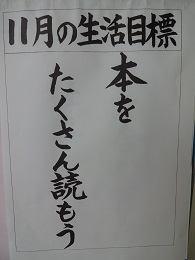 11月の生活目標
本を
たくさん読もう